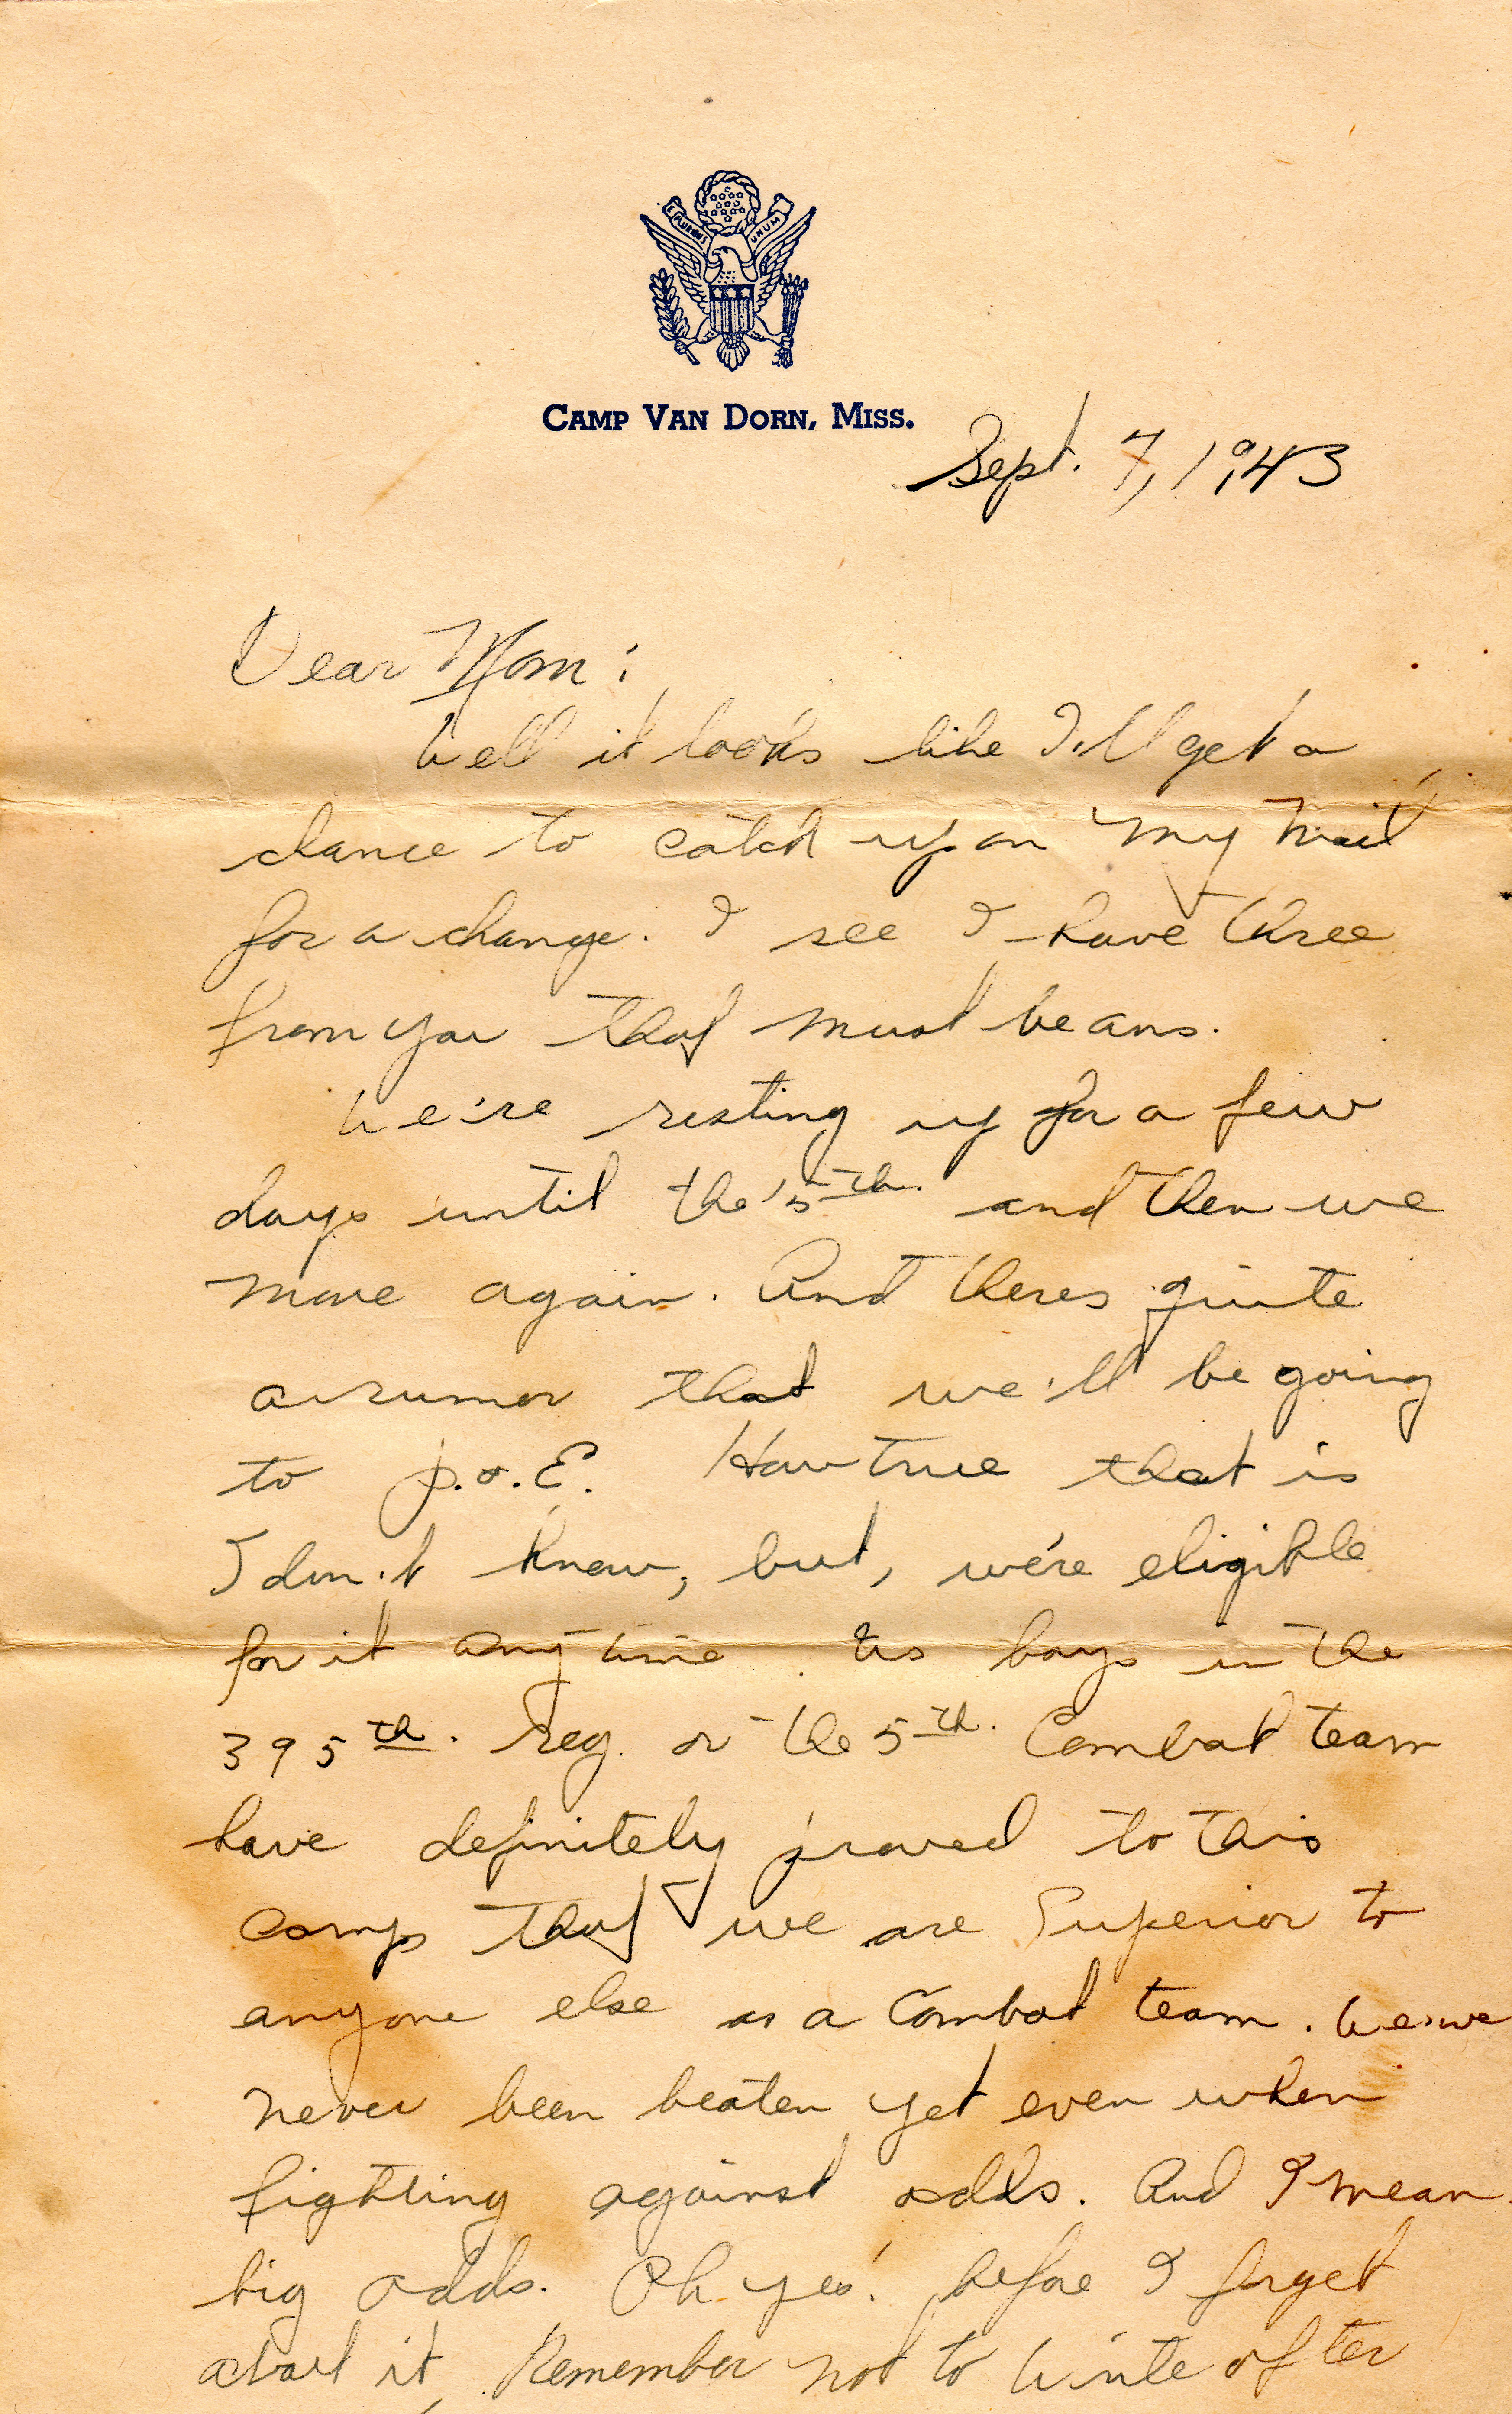 E PLURIBUS UNUM
CAMP VAN DORN, MISS.
Sept. 7, 1943
Dear Mom:
Well it looks like I'll get a
chance to catch up on my mail
for a change. I see I have three
from you that must be ans.
We're resting up for a few
days until the 5th. and then we
move again. And theres quite
a rumor that we'll be going
to P.O.E. How true that is
I don't know, but, we're eligible
for it anytime. Us boys in the
395th. reg. or the 5th. Combat team
have definitely proved to this
camp that we are Superior to
anyone else as a Combat team. We've
never been beaten yet even when
fighting against odds. And I mean
big odds. Oh yes! before I forget
about it, Remember not to write after